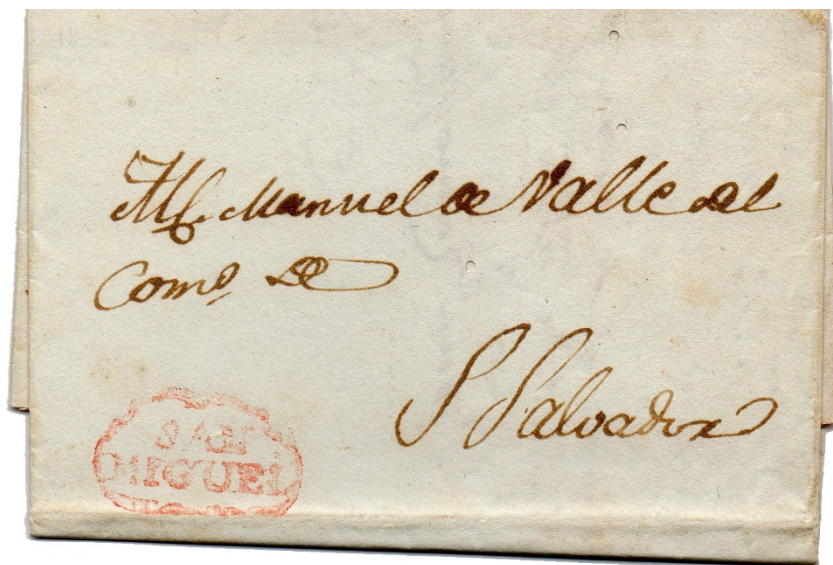 Manuel de Valle del
Como. de
S Salvador
SAN
MIGUEL